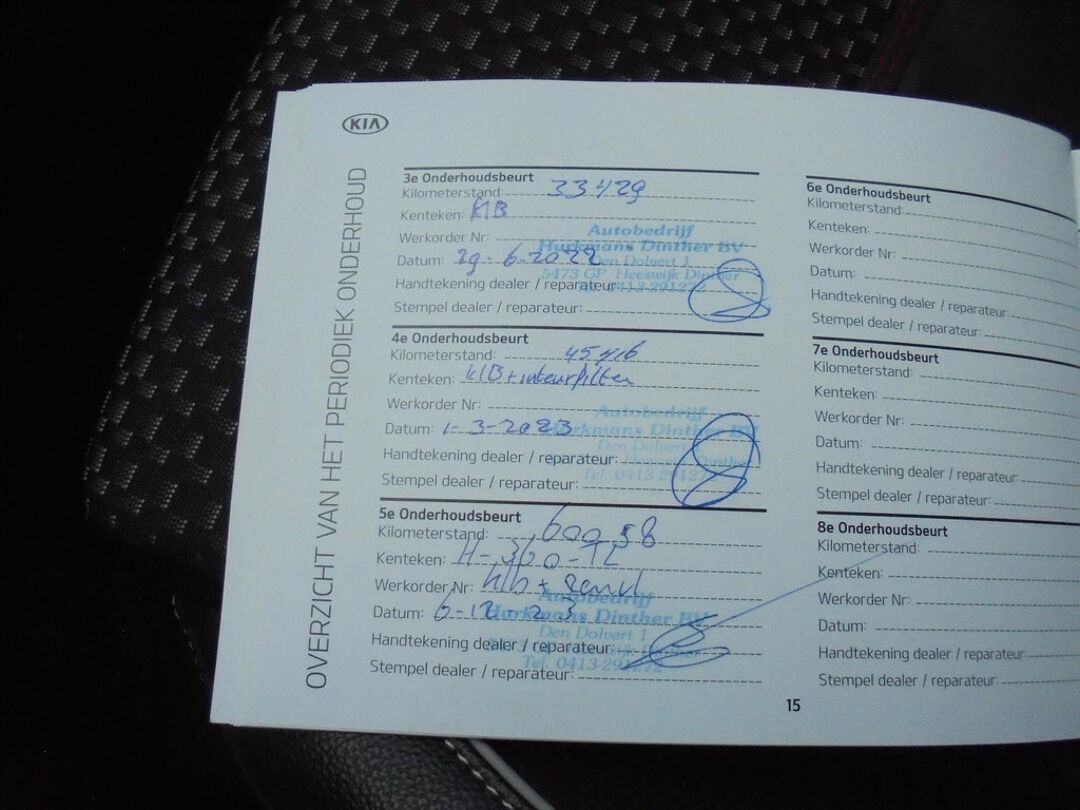 KIA
OVERZICHT VAN HET PERIODIEK ONDERHOUD
3e Onderhoudsbeurt
Kilometerstand: 33429
Kenteken: KlB
Werkorder Nr:
Datum: 29-6-2022
Handtekening dealer / reparateur:
Stempel dealer / reparateur:
Autobedrijf
Hurkmans Dinther BV
Den Dolvert 1
5473 GP Heeswijk Dinther
0413-291272
4e Onderhoudsbeurt
Kilometerstand:
Kenteken: KlB + inteurfilter
Werkorder Nr:
Datum: 1-3-2023
Handtekening dealer / reparateur:
Stempel dealer / reparateur:
Autobedrijf
Hurkmans Dinther BV
Den Dolvert
Dinther
Tel. 0413-291272
5e Onderhoudsbeurt
Kilometerstand: 60058
Kenteken: H-360-TL
Werkorder Nr: klb +
Datum: 6-12-23
Handtekening dealer / reparateur:
Stempel dealer / reparateur:
Autobedrijf
Hurkmans Dinther BV
Den Dolvert 1
Tel. 0413-291272
6e Onderhoudsbeurt
Kilometerstand:
Kenteken:
Werkorder Nr:
Datum:
Handtekening dealer / reparateur:
Stempel dealer / reparateur:
7e Onderhoudsbeurt
Kilometerstand:
Kenteken:
Werkorder Nr:
Datum:
Handtekening dealer / reparateur:
Stempel dealer / reparateur:
8e Onderhoudsbeurt
Kilometerstand:
Kenteken:
Werkorder Nr:
Datum:
Handtekening dealer / reparateur:
Stempel dealer / reparateur:
15